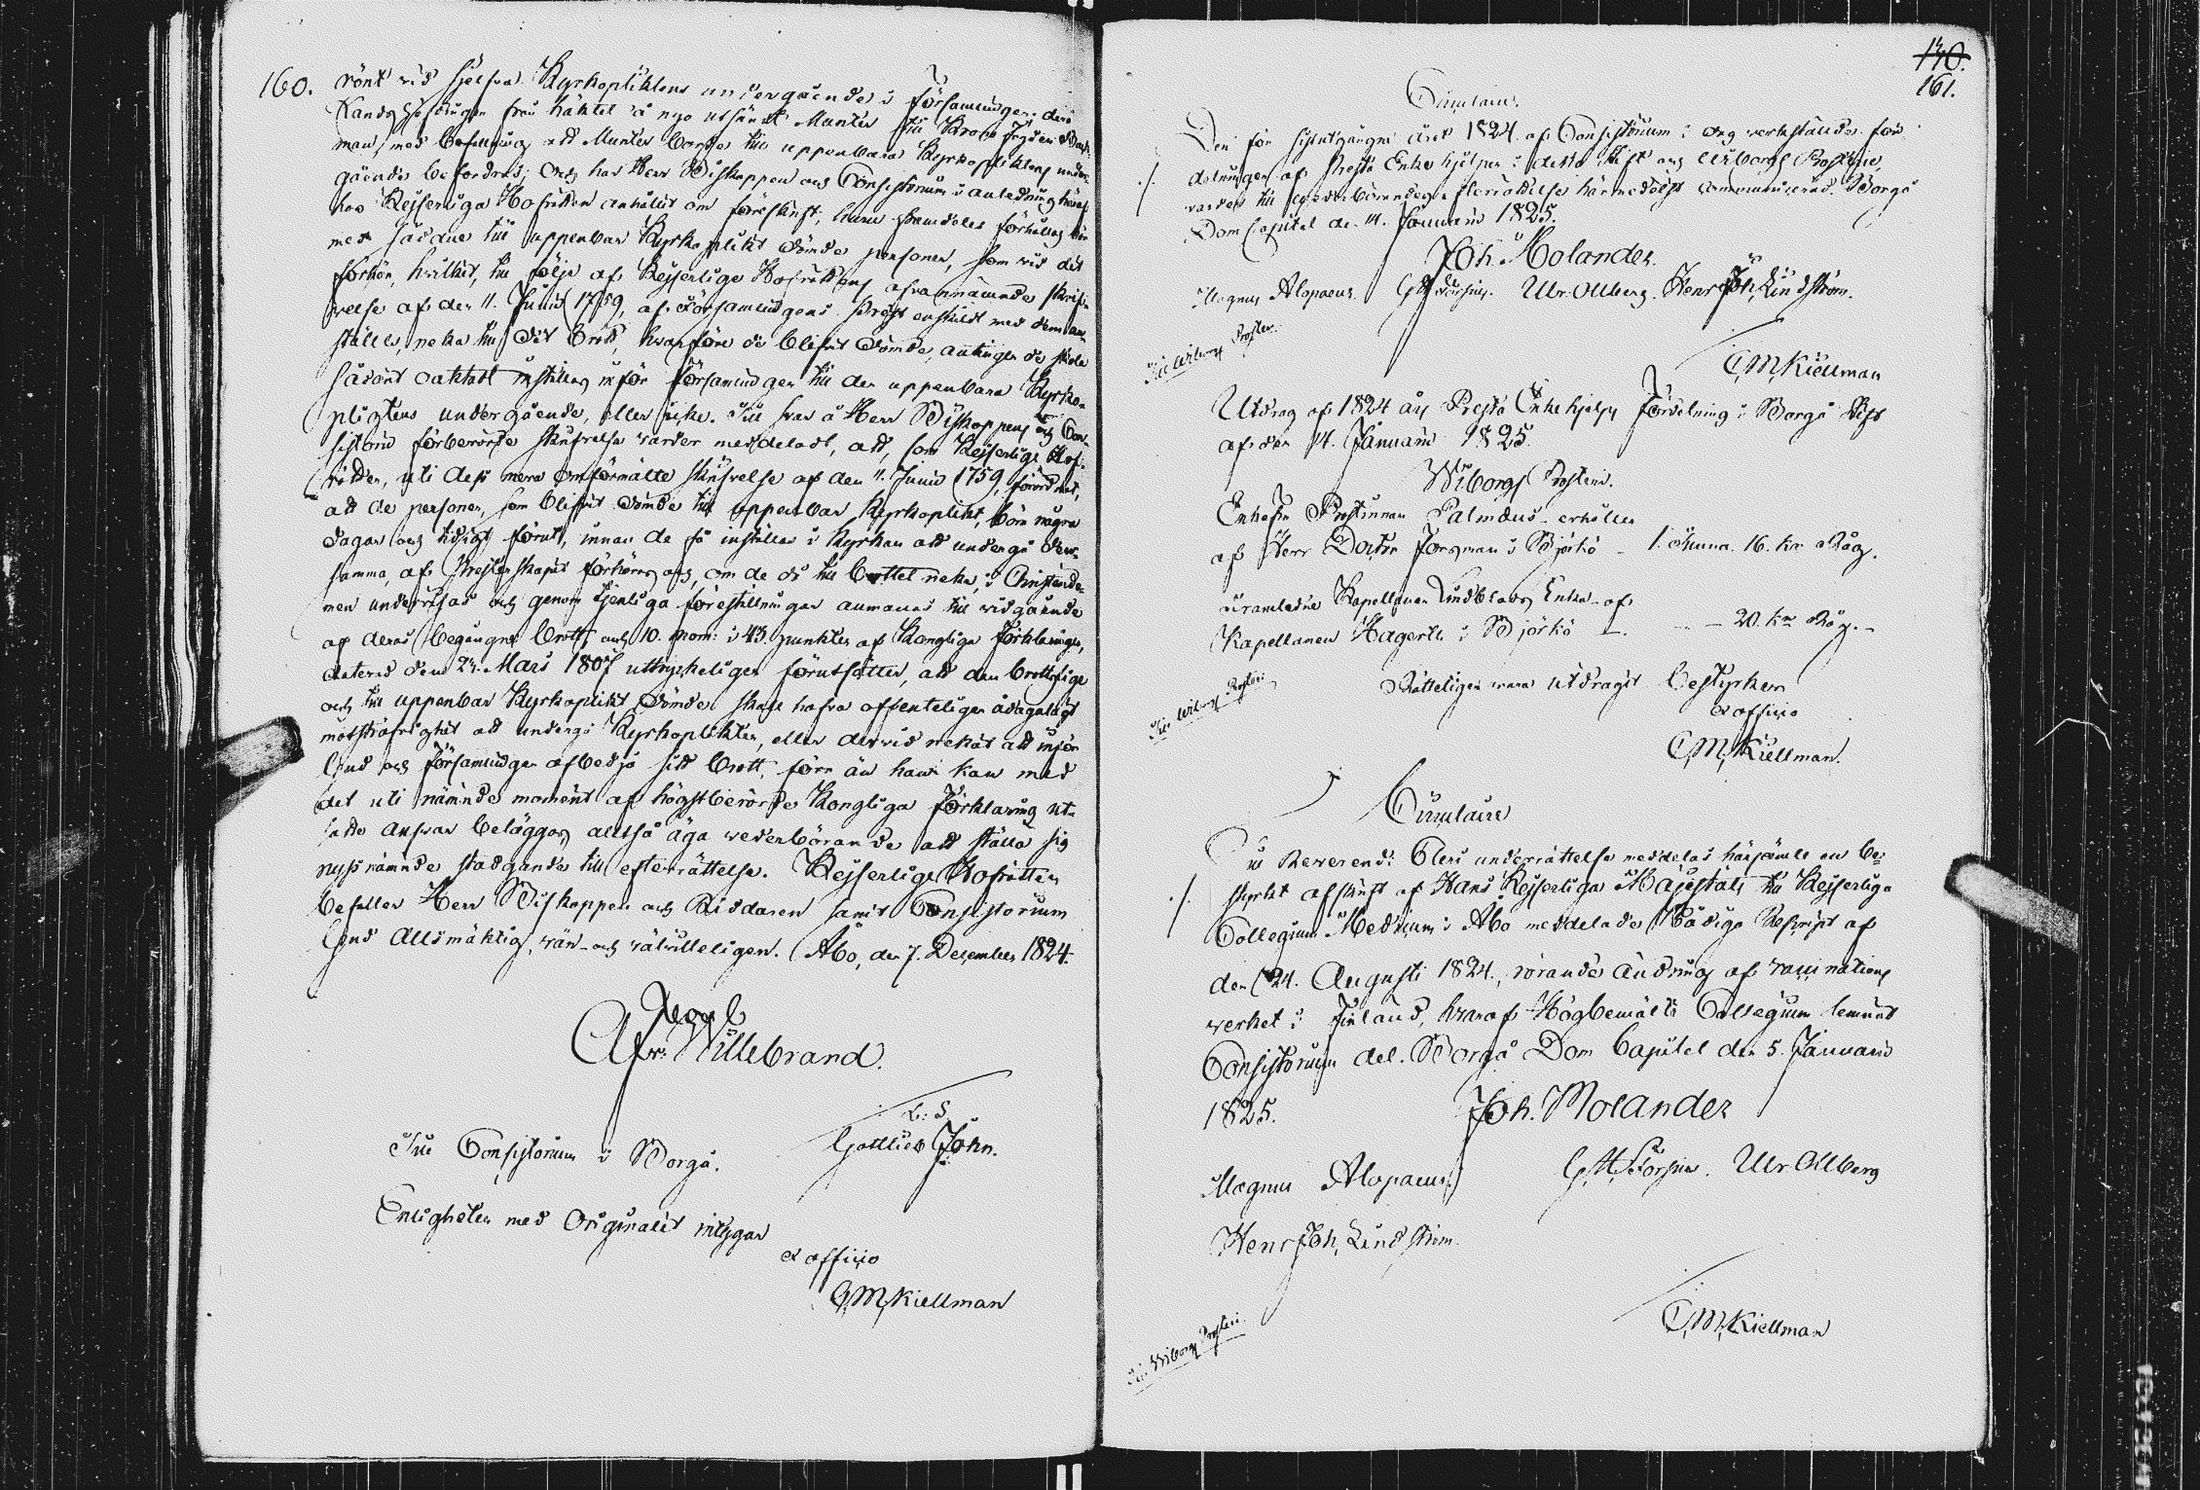 160.
rönt vid sjelfva Kyrkopliktens undergående i Församlingen; dess
Landshöfdingen från häktet å nyo utsändt Munter till Krono Fogden
man, med befallning att Munter borde till uppenbara Kyrkopliktens under-
gående befordras; och har Herr Biskoppen och Consistorium i anledning häraf
hos Kejserliga Hofrätten anhållit om föreskrift, huru framdeles förhållas bör
med sådane till uppenbar Kyrkoplikt dömde personer, som vid det
förhör, hvilket, till följe af Kejserliga Hofrättens ofvannämnde skrif-
velse af den 11. Junii 1759, af Församlingens Prest enskildt med dem an-
ställes, neka till det brott, hvarföre de blifvit dömde, antingen de skola
sådant oaktadt inställas inför Församlingen till den uppenbara Kyrko-
pligtens undergående, eller icke. Till svar å Herr Biskoppens och Con-
sistorii förberörde skrifvelse varder meddeladt, att, som Kejserliga Hof-
rätten, uti dess mera omförmälte skrifvelse af den 11. Junii 1759, förordnat,
att de personer, som blifvit dömde till uppenbar Kyrkoplikt, böra några
dagar och tidigt förut, innan de få inställas i Kyrkan att undergå den-
samma, af Presterskapet förhöras och, om de då till brottet neka, i Christendo-
men undervisas och genom tjenliga föreställningar anmanas till vidgående
af deras begångne brott, och 10. mom: i 43 punkten af Kongliga Förklaringen,
daterad den 23. Mars 1807 uttryckeligen förutsätter, att den brottslige
och till uppenbar Kyrkoplikt dömde skall hafva offenteligen ådagalagt
motsträfvighet att undergå Kyrkoplikten, eller dervid nekat att inför
Gud och Församlingen afbedja sitt brott, förr än han kan med
det uti nämnde moment af högstberörde Kongliga Förklaring ut-
satte ansvar beläggas, alltså äga vederbörande att ställa sig
nyssnämnde stadgande till efterrättelse. Kejserliga Hofrätten
befaller Herr Biskoppen och Riddaren samt Consistorium
Gud Allsmäktig, vän- och välvilleligen. Åbo, den 7. December 1824.
Willebrand.
L: S.
Gottlieb John.
Till Consistorium i Borgå.
Enligheten med Originalet intygar
ex officio
C,M,Kiellman
140.
161.
Circulaire.
Den för sistutgångne året 1824 af Consistorium i dag verkstälde för-
delningen af Prest Enke hjelpen i detta Stift och Wiborgs Prosteri,
varder till vederbörandes efterrättelse härmedelst communicerad. Borgå
Dom Capitel den 14. Januarii 1825.
Joh. Molander.
Magnus Alopaeus. Ulr. Ollberg. Henr Joh, Lindström.
Till Wiborgs Prosteri.
C,M,Kiellman
Utdrag af 1824 års Prest Enke hjelps Fördelning i Borgå Stift
af den 14. Januarii 1825.
Wiborgs Prosteri.
Enkefru Prostinnan Palmdus erhåller
af Herr Doctor Forsman i Björkö _ 1. Tunna. 16. k:r Råg.
Framledne Kapellanen Lindblads Enka _ af
Kapellanen Hagerth i Björkö _ _ 20. k:r Råg. _
Till Wiborgs Prosteri.
Rätteligen vara utdraget bestyrker
ex officio
C,M,Kiellman.
Circulaire
Till Reverendi Cleri underrättelse meddelas härjämte en be-
./. styrkt afskrift af Hans Kejserliga Majestäts till Kejserliga
Collegium Medicum i Åbo meddelade Nådiga Rescript af
den 24. Augusti 1824., rörande ändring af vaccinations
verket i Finland, hvaraf Högbemälte Collegium lemnat
Consistorium del. Borgå Dom Capitel den 5. Januarii
1825.
Joh. Molander
Magnus Alopaeus. Ulr. Ollberg
Henr Joh, Lindström.
C,M,Kiellman
Till Wiborgs Prosteri.